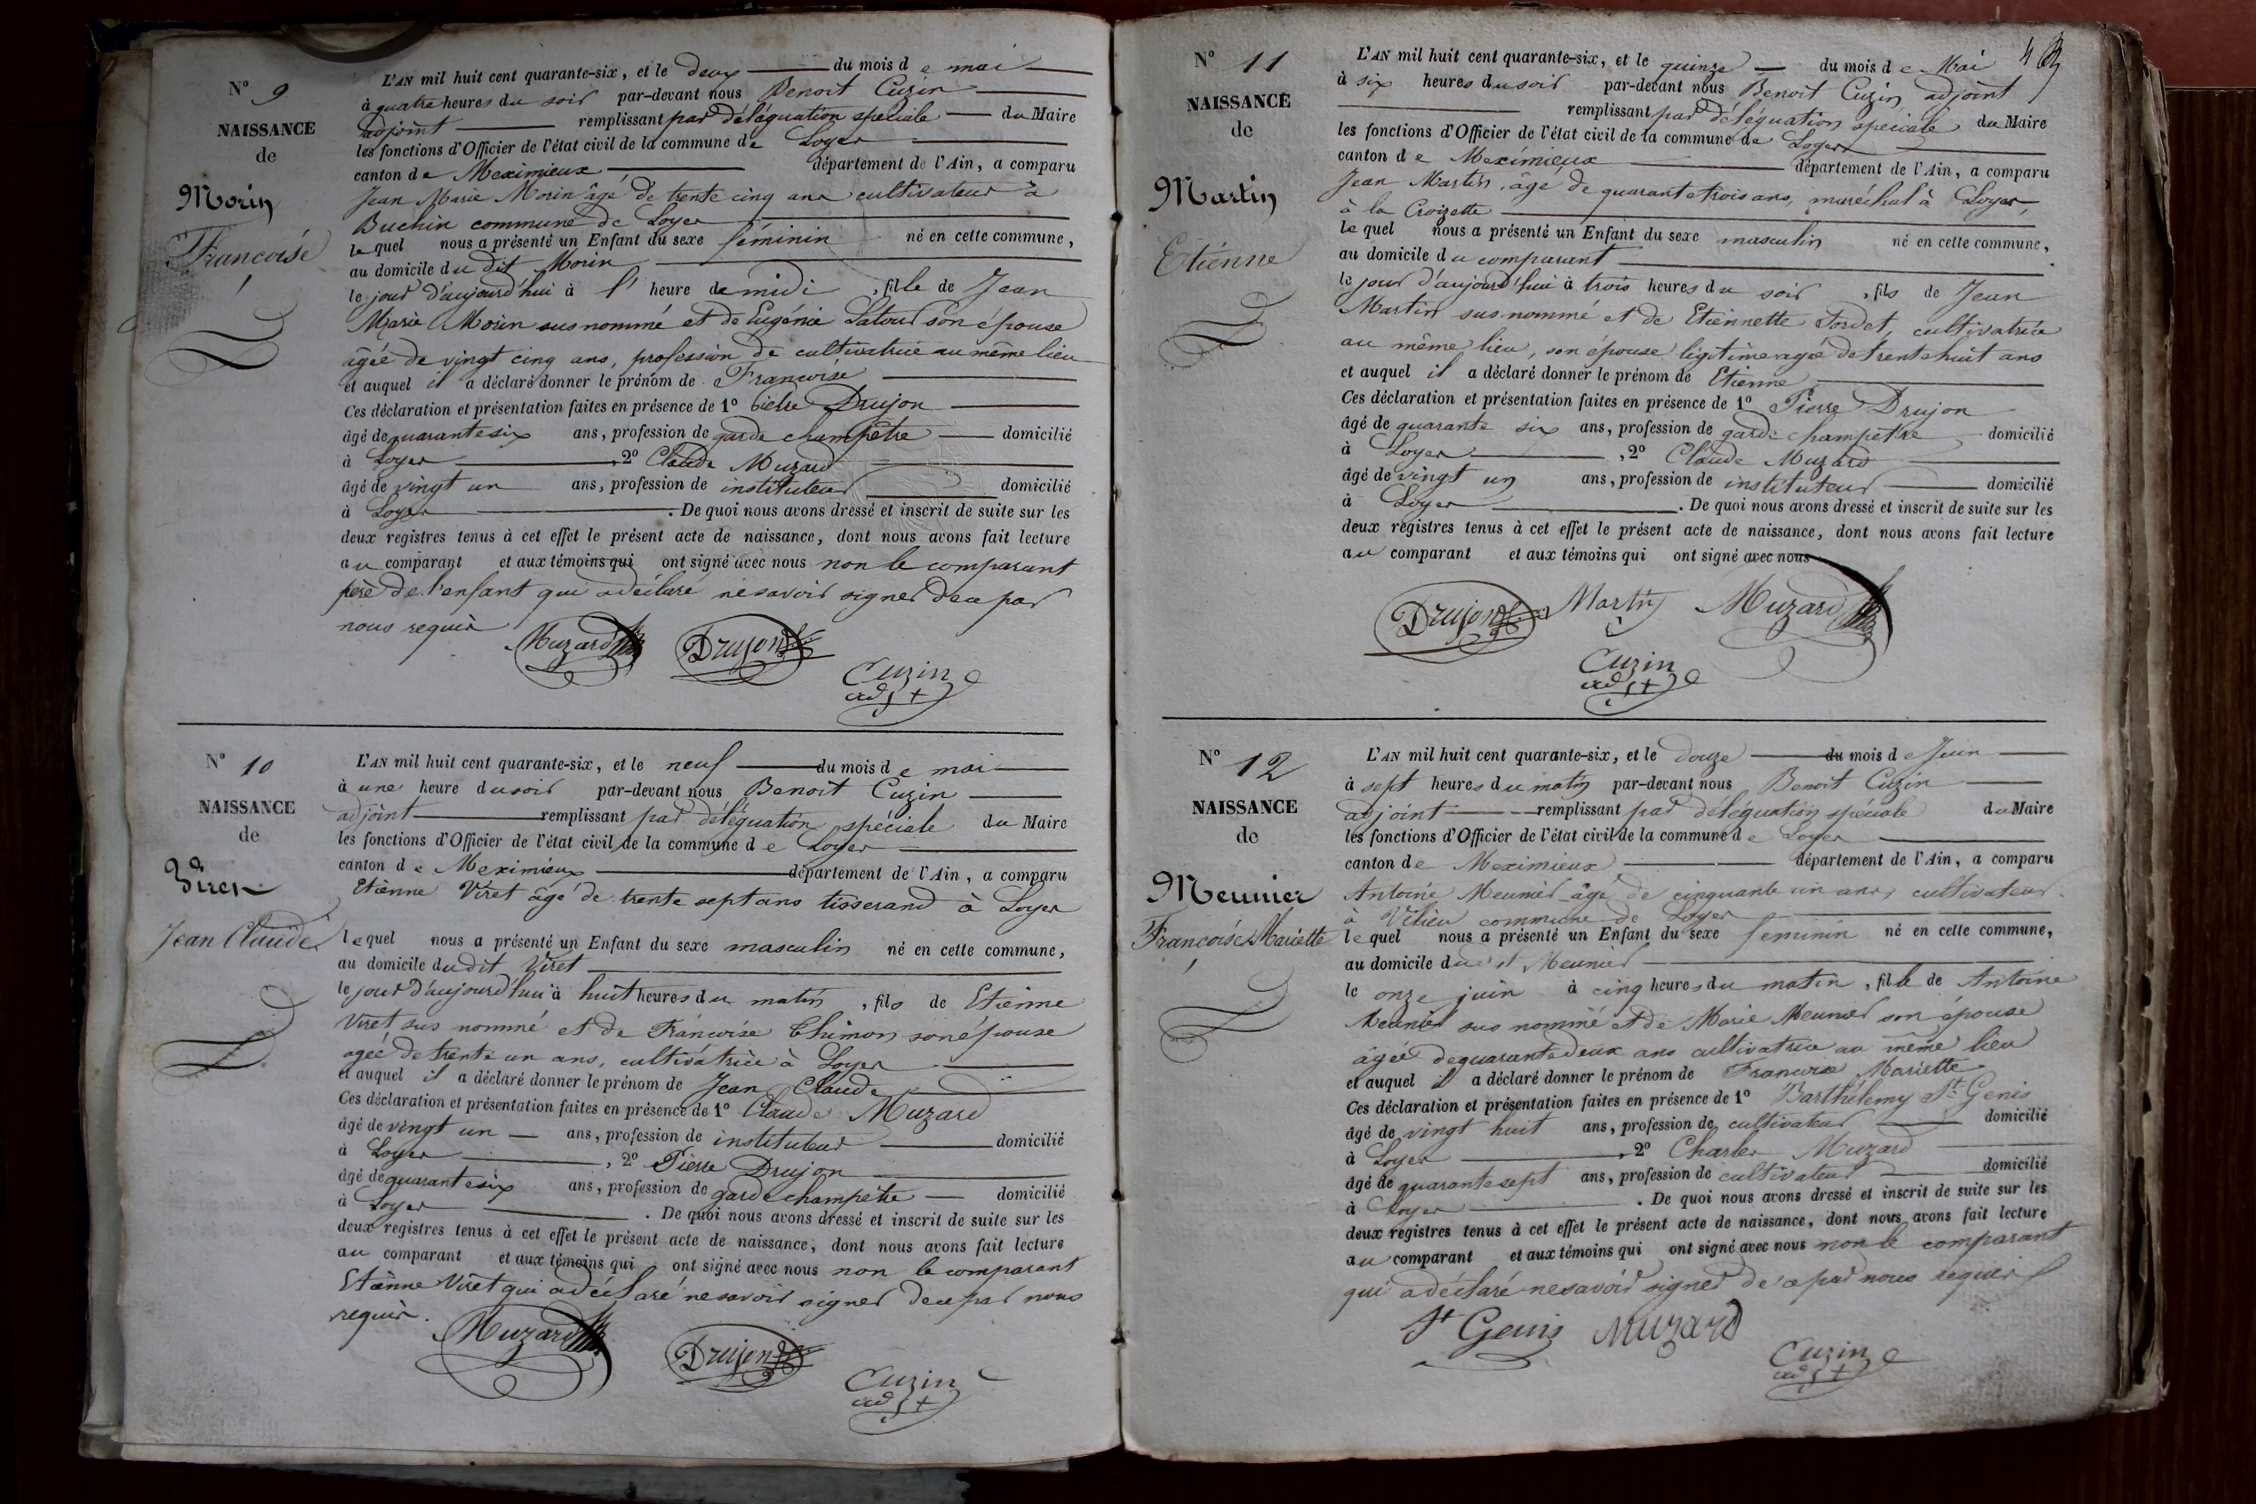 N.º 9
NAISSANCE
de
Morin
Francoise
L'AN mil huit cent quarante-six, et le deux du mois de mai
à quatre heures du soir par-devant nous Benoit Cuzin
adjoint remplissant par déléguation spéciale du Maire
les fonctions d'Officier de l'état civil de la commune de Loyer
canton de Meximieux département de l'Ain, a comparu
Jean Marie Morin âgé de trente cinq ans cultivateur à
Buchin commune de Loyer
lequel nous a présenté un Enfant du sexe féminin né en cette commune,
au domicile du dit Morin
le jour d'aujourd'hui à l' heure de midi, fille de Jean
Marie Morin susnommé et de Eugénie Latour son épouse
âgée de vingt cinq ans, profession de cultivatrice au même lieu
et auquel il a déclaré donner le prénom de Francoise
Ces déclaration et présentation faites en présence de 1º Pierre Drujon
âgé de quarante six ans, profession de garde champêtre domicilié
à Loyer, 2º Claude Muzard
âgé de vingt un ans, profession de instituteur domicilié
à Loyer. De quoi nous avons dressé et inscrit de suite sur les
deux registres tenus à cet effet le présent acte de naissance, dont nous avons fait lecture
au comparant et aux témoins qui ont signé avec nous non le comparant
père de l'enfant qui a déclaré ne savoir signer de ce par
nous requis
Muzard Drujon
Cuzin
adjt
N.º 10
NAISSANCE
de
Viret
Jean Claude
L'AN mil huit cent quarante-six, et le neuf du mois de mai
à une heure du soir par-devant nous Benoit Cuzin
adjoint remplissant par déléguation spéciale du Maire
les fonctions d'Officier de l'état civil de la commune de Loyer
canton de Meximieux département de l'Ain, a comparu
Etienne Viret âgé de trente sept ans tisserand à Loyer
lequel nous a présenté un Enfant du sexe masculin né en cette commune,
au domicile du dit Viret
le jour d'aujourd'hui à huit heures du matin, fils de Etienne
Viret sus nommé et de Francoise Chimon son épouse
agée de trente un ans, cultivatrice à Loyer
et auquel il a déclaré donner le prénom de Jean Claude
Ces déclaration et présentation faites en présence de 1º Claude Muzard
âgé de vingt un ans, profession de instituteur domicilié
à Loyer, 2º Pierre Drujon
âgé de quarante six ans, profession de garde champêtre domicilié
à Loyer. De quoi nous avons dressé et inscrit de suite sur les
deux registres tenus à cet effet le présent acte de naissance, dont nous avons fait lecture
au comparant et aux témoins qui ont signé avec nous non le comparant
Etienne Viret qui a déclaré ne savoir signer de ce par nous
requis.
Muzard Drujon
Cuzin
adjt
4
N.º 11
NAISSANCE
de
Martin
Etienne
L'AN mil huit cent quarante-six, et le quinze du mois de Mai
à six heures du soir par-devant nous Benoit Cuzin adjoint
remplissant par déléguation speciale du Maire
les fonctions d'Officier de l'état civil de la commune de Loyer
canton de Meximieux département de l'Ain, a comparu
Jean Martin, âgé de quarante trois ans, maréchal à Loyer,
à la Croizette
lequel nous a présenté un Enfant du sexe masculin né en cette commune,
au domicile du comparant
le jour d'aujourd'hui à trois heures du soir, fils de Jean
Martin sus nommé et de Etiennette Tordet, cultivatrice
au même lieu, son épouse légitime agée de trente huit ans
et auquel il a déclaré donner le prénom de Etienne
Ces déclaration et présentation faites en présence de 1º Pierre Drujon
âgé de quarante six ans, profession de garde champêtre domicilié
à Loyer, 2º Claude Muzard
âgé de vingt un ans, profession de instituteur domicilié
à Loyer. De quoi nous avons dressé et inscrit de suite sur les
deux registres tenus à cet effet le présent acte de naissance, dont nous avons fait lecture
au comparant et aux témoins qui ont signé avec nous
Drujon Martin Muzard
Cuzin
adjt
N.º 12
NAISSANCE
de
Meunier
Francoise Mariette
L'AN mil huit cent quarante-six, et le douze du mois de Juin
à sept heures du matin par-devant nous Benoit Cuzin
adjoint remplissant par déléguation spéciale du Maire
les fonctions d'Officier de l'état civil de la commune de Loyer
canton de Meximieux département de l'Ain, a comparu
Antoine Meunier âgé de cinquante un ans, cultivateur
à Vilieu commune de Loyer
lequel nous a présenté un Enfant du sexe feminin né en cette commune,
au domicile du dit Meunier
le onze juin à cinq heures du matin, fille de Antoine
Meunier sus nommé et de Marie Meunier son épouse
âgée de quarante deux ans cultivatrice au même lieu
et auquel il a déclaré donner le prénom de Francoise Mariette
Ces déclaration et présentation faites en présence de 1º Barthélemy St Genis
âgé de vingt huit ans, profession de cultivateur domicilié
à Loyer, 2º Charles Muzard
âgé de quarante sept ans, profession de cultivateur domicilié
à Loyer. De quoi nous avons dressé et inscrit de suite sur les
deux registres tenus à cet effet le présent acte de naissance, dont nous avons fait lecture
au comparant et aux témoins qui ont signé avec nous non le comparant
qui a déclaré ne savoir signer de ce par nous requis
St Genis Muzard
Cuzin
adjt